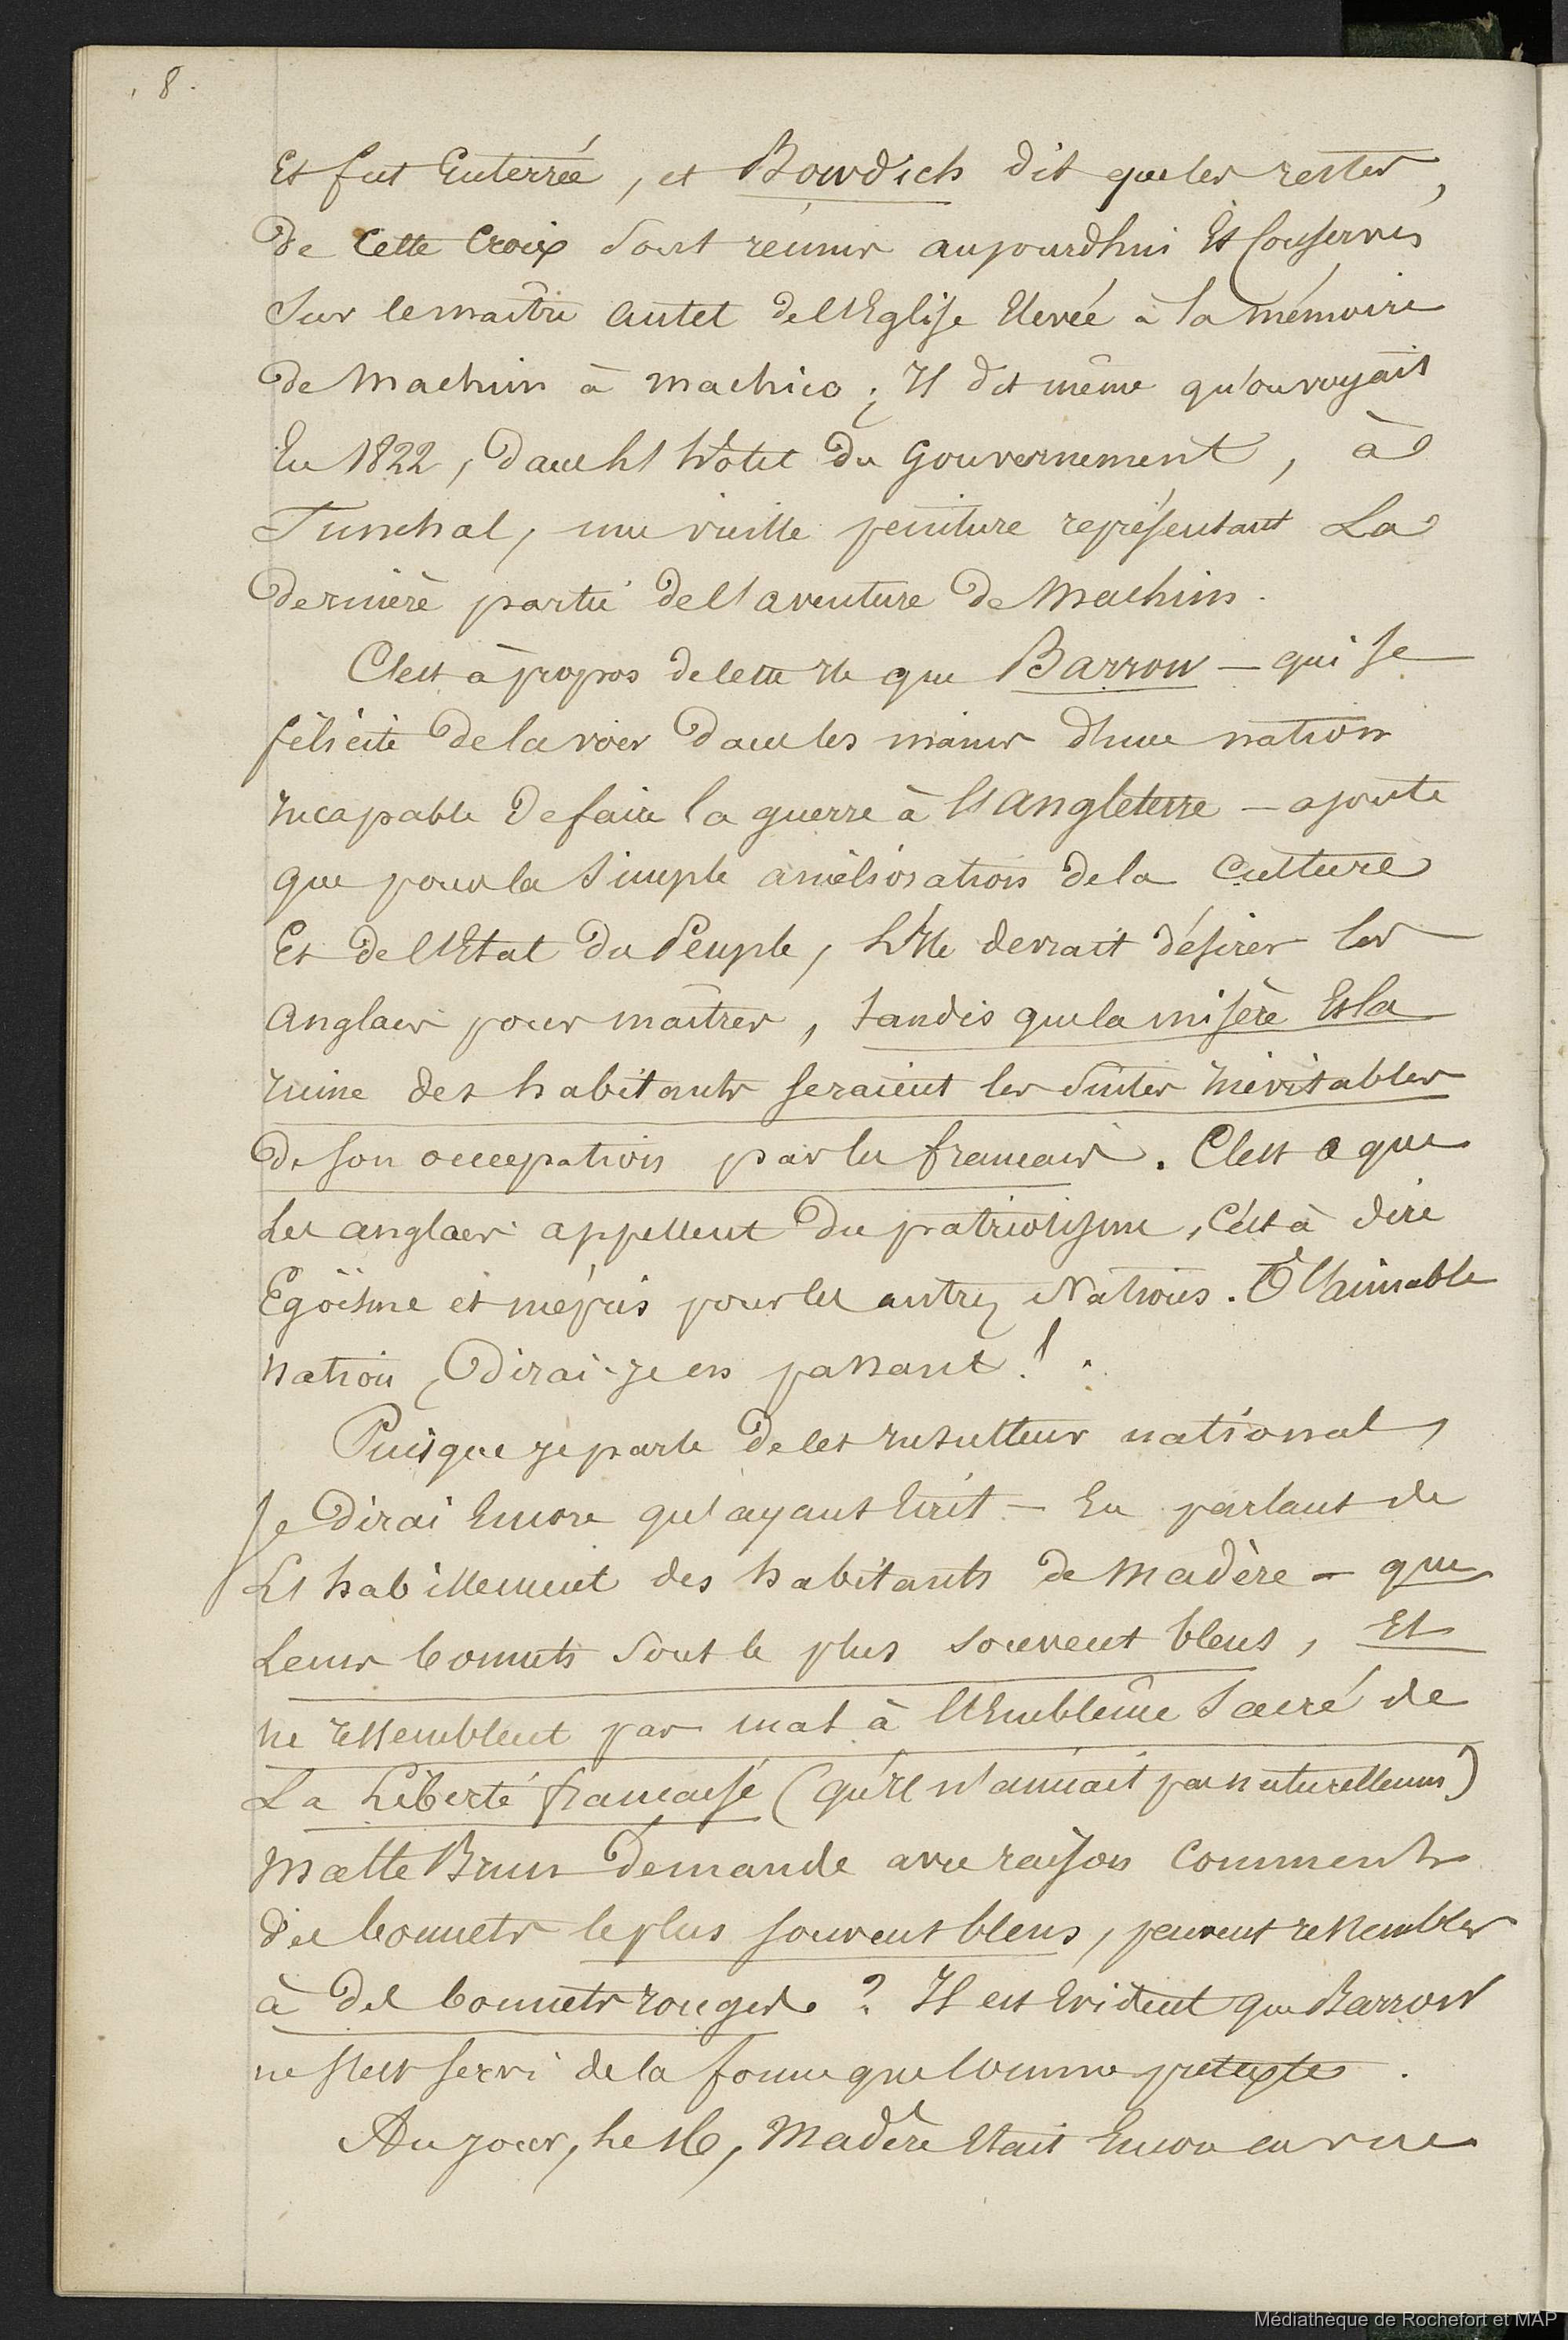 8.
Et fut Enterrée, et Bowdich dit que les restes,
de Cette Croix sont réunis aujourdhui Et Conservés
Sur le maître autel de l'Eglise Elevée à la mémoire
de Machim à Machico ; Il dit même qu'on voyait
En 1822, dans l'hôtel du Gouvernement, à
Funchal, une vieille peinture représentant La
dernière partie de l'aventure de Machim.
C'est à propos de cette Ile que Barrow – qui se
félicite de la voir dans les mains d'une nation
Incapable de faire la guerre à l'Angleterre – ajoute
que pour la simple amélioration de la Culture
Et de l'Etat du Peuple, L'Ile devrait désirer les
Anglais pour maîtres, tandis que la misère Et la
ruine des habitants seraient les suites Inévitables
de son occupation par les francais. C'est ce que
Les anglais appellent du patriotisme, c'est à dire
Egoïsme et mépris pour les autres Nations. O l'aimable
nation, Dirai-je en passant !.
Puisque je parle de cet Insulteur national,
Je Dirai Encore qu'ayant Ecrit – En parlant de
L'habillement des habitants de Madère – que
Leurs bonnets sont le plus souvent bleus, Et
ne ressemblent pas mal à l'Emblême Sacré de
La Liberté francaise (qu'Il n'aimait pas naturellement)
Malte Brun demande avec raison Comment
des bonnets le plus souvent bleus, peuvent ressembler
à des bonnets rouges ? Il est Evident que Barrow
ne s'est servi de la forme que comme prétexte.
Au jour, Le 16, Madère Etait Encore en vue
Médiathèque de Rochefort et MAP